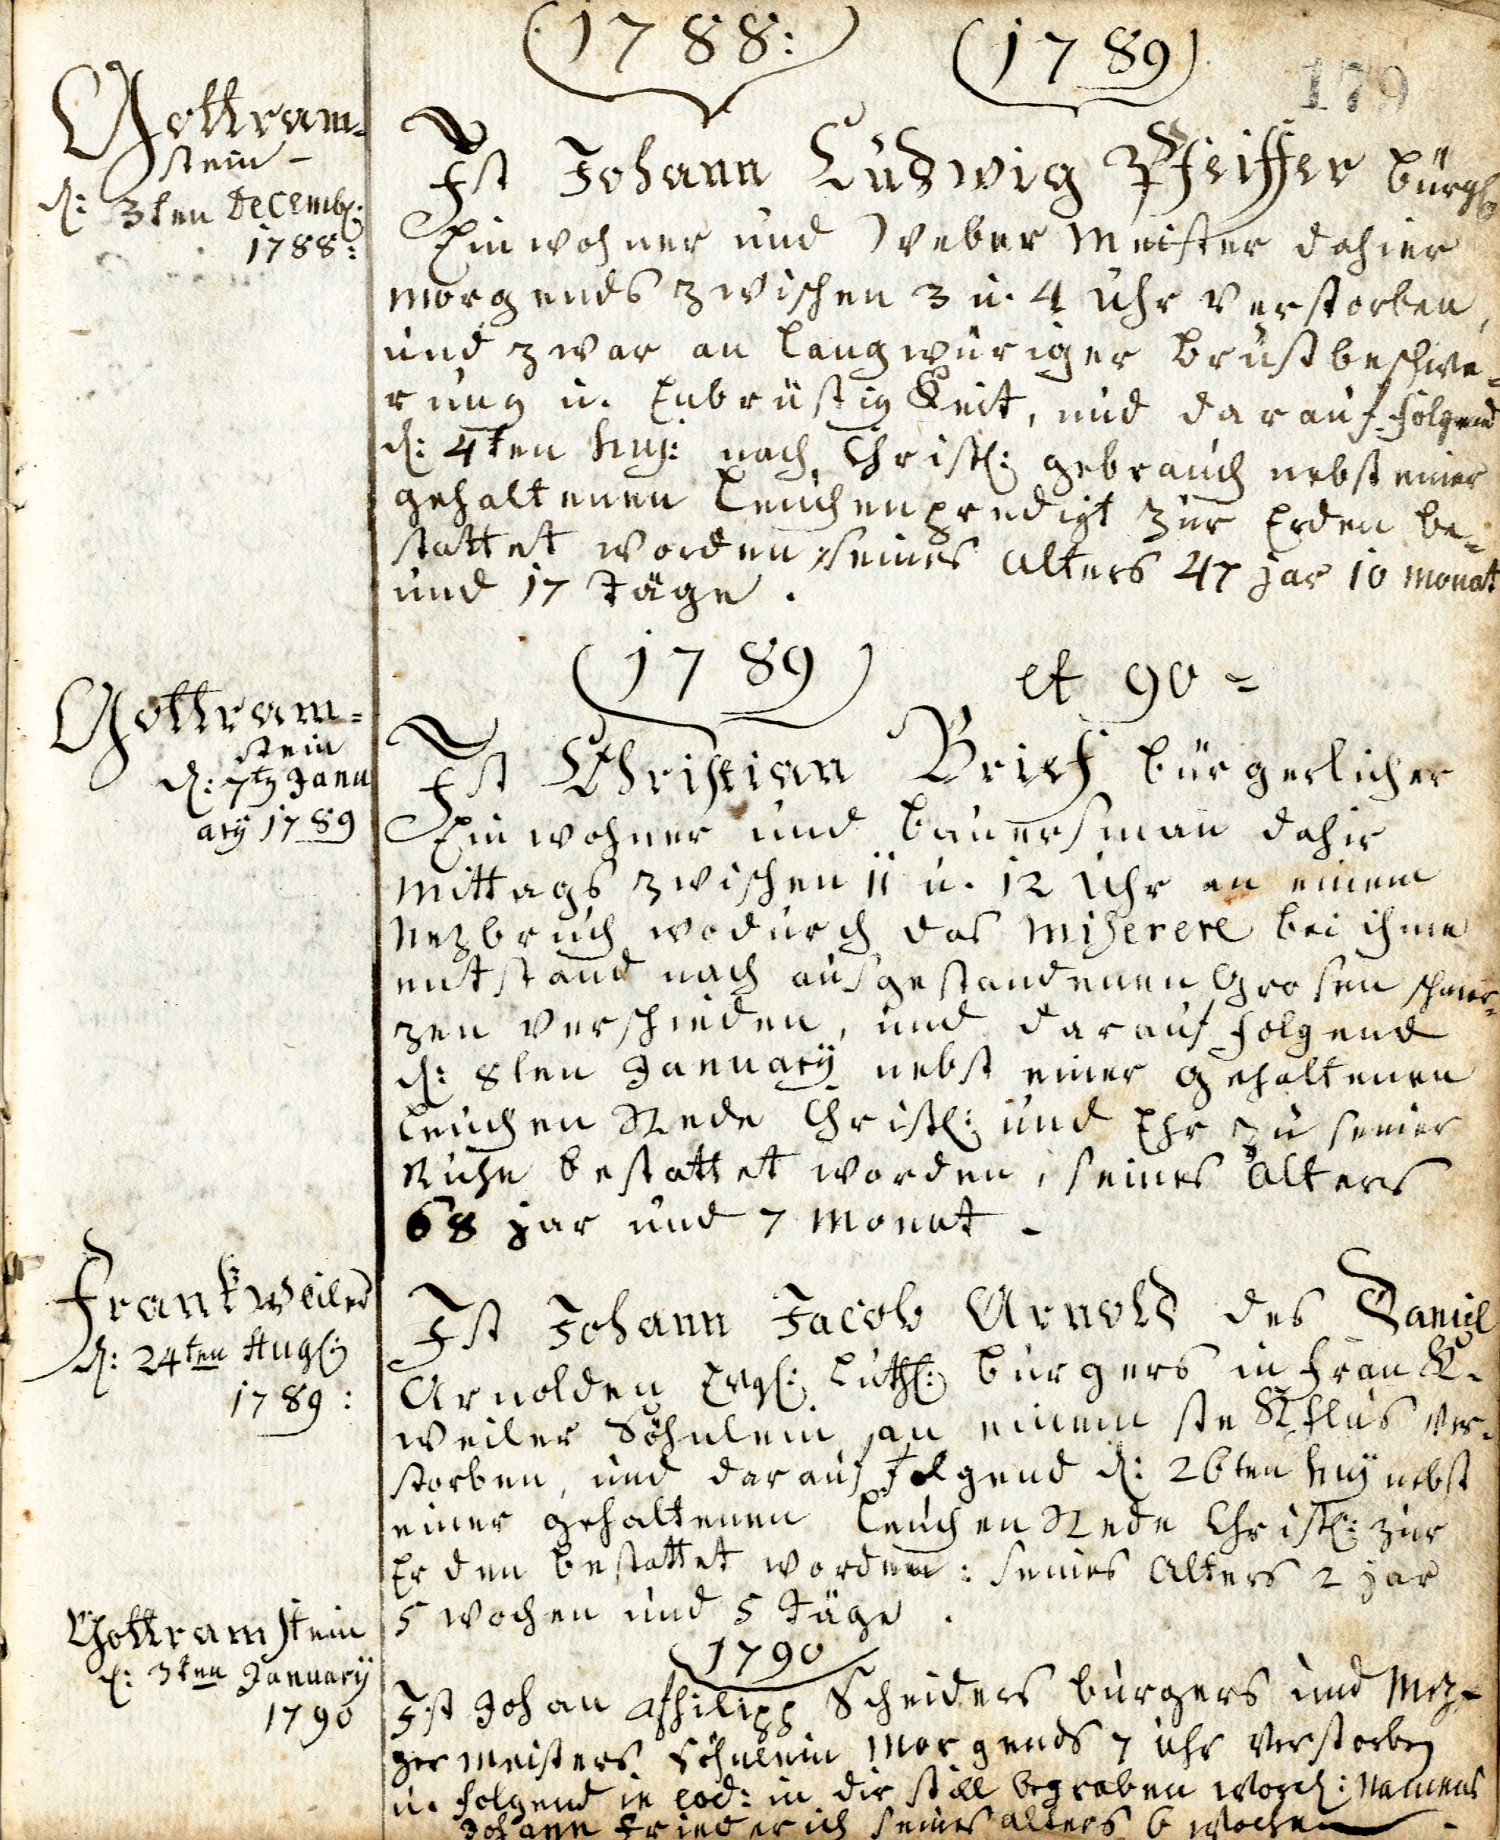 (1788:) (1789)
179
Gottram-
stein -
d: 3ten Decemb:
1788:
Ist Johann Ludwig Pfeiffer bürgl
Einwohner und Weber Meister dahier
morgends zwischen 3 u. 4 Uhr verstorben,
und zwar an langwüriger Brustbeschwe-
rung u. Enbrüstigkeit, und darauf folgend
d: 4ten huj: nach Christl: gebrauch nebst einer
gehaltenen Leuchenpredigt zur Erden be-
stattet worden, seines Alters 47 jar 10 Monat
und 17 Täge.
(1789) et 90 =
Gottram-
stein
d: 7tn Janu
ary 1789
Ist Christian Brief bürgerlicher
Einwohner und bauersman dahir
Mittags zwischen 11 u. 12 Uhr an einem
Nezbruch wodurch das Miserere bei ihme
entstand nach ausgestandenen Grosen schmer-
zen verschieden, und darauf folgend
d: 8ten January nebst einer gehaltenen
Leuchen Rede Christl: und Ehr zu seiner
Ruhe bestattet worden, seines Alters
68 jar und 7 Monat -
Frankweiler
d: 24ten Augl:
1789:
Ist Johann Jacob Arnold des Daniel
Arnolden Evgl: Luthl: burgers in Frank-
weiler Söhnlein an einem steckflus ver-
storben, und darauf folgend d: 26ten huj nebst
einer gehaltenen Leuchen Rede Christl: zur
Erden bestattet worden: seines Alters 2 jar
5 wochen und 5 Täge.
1790
Gottramstein
d: 3ten January
1790
Ist Johan Philipp Scheiders burgers und Mez-
germeisters Söhnlein Morgends 7 uhr verstorben
u. folgend ie eod: in der still begraben word: Namens
Johann Friederich seines alters 6 Wochen -